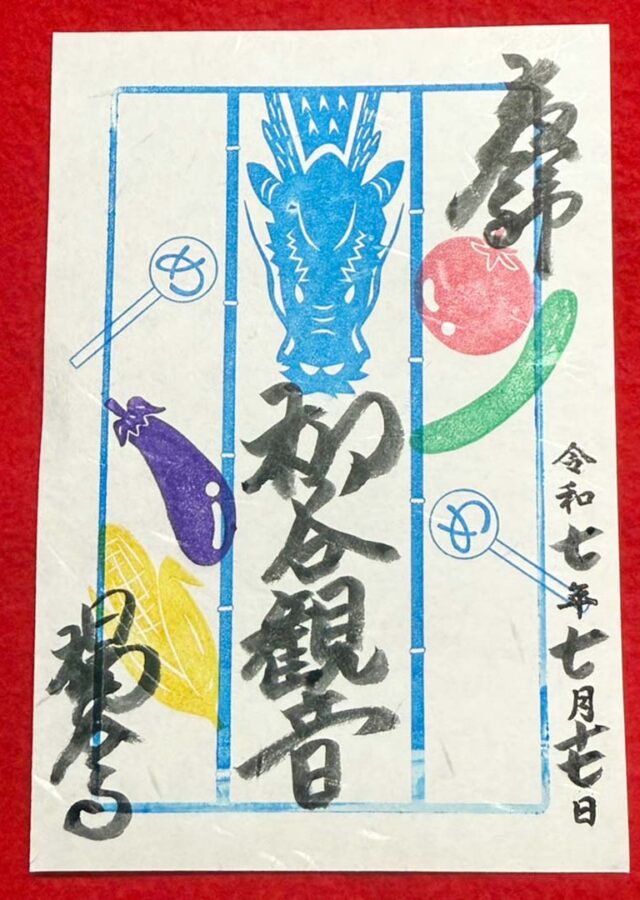 奉拝
令和七年七月十七日
柳谷観音
め
め
楊谷寺